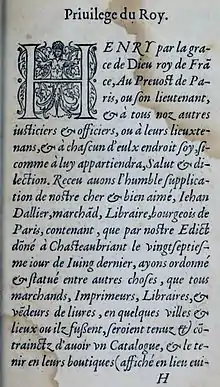 Priuilege du Roy.
HENRY par la gra-
ce de Dieu roy de Frã
ce, Au Preuost de Pa-
ris, ou son lieutenant,
& à tous noz autres
iusticiers & officiers, ou à leurs lieuxte-
nans, & à chascun d'eulx endroit soy, si-
comme à luy appartiendra, Salut & di-
lection. Receu auons l'humble supplica-
tion de nostre cher & bien aimé, Iehan
Dallier, marchãd, Libraire, bourgeois de
Paris, contenant, que par nostre Edict
dõné à Chasteaubriant le vingtseptieſ-
me iour de Iuing dernier, ayons ordonné
& statué entre autres choses, que tous
marchands, Imprimeurs, Libraires, &
vẽdeurs de liures, en quelques villes &
lieux ou ilz fussent, seroient tenuz & cõ-
trainctz d'auoir vn Catalogue, & le te-
nir en leurs boutiques (affiché en lieu eui-
H